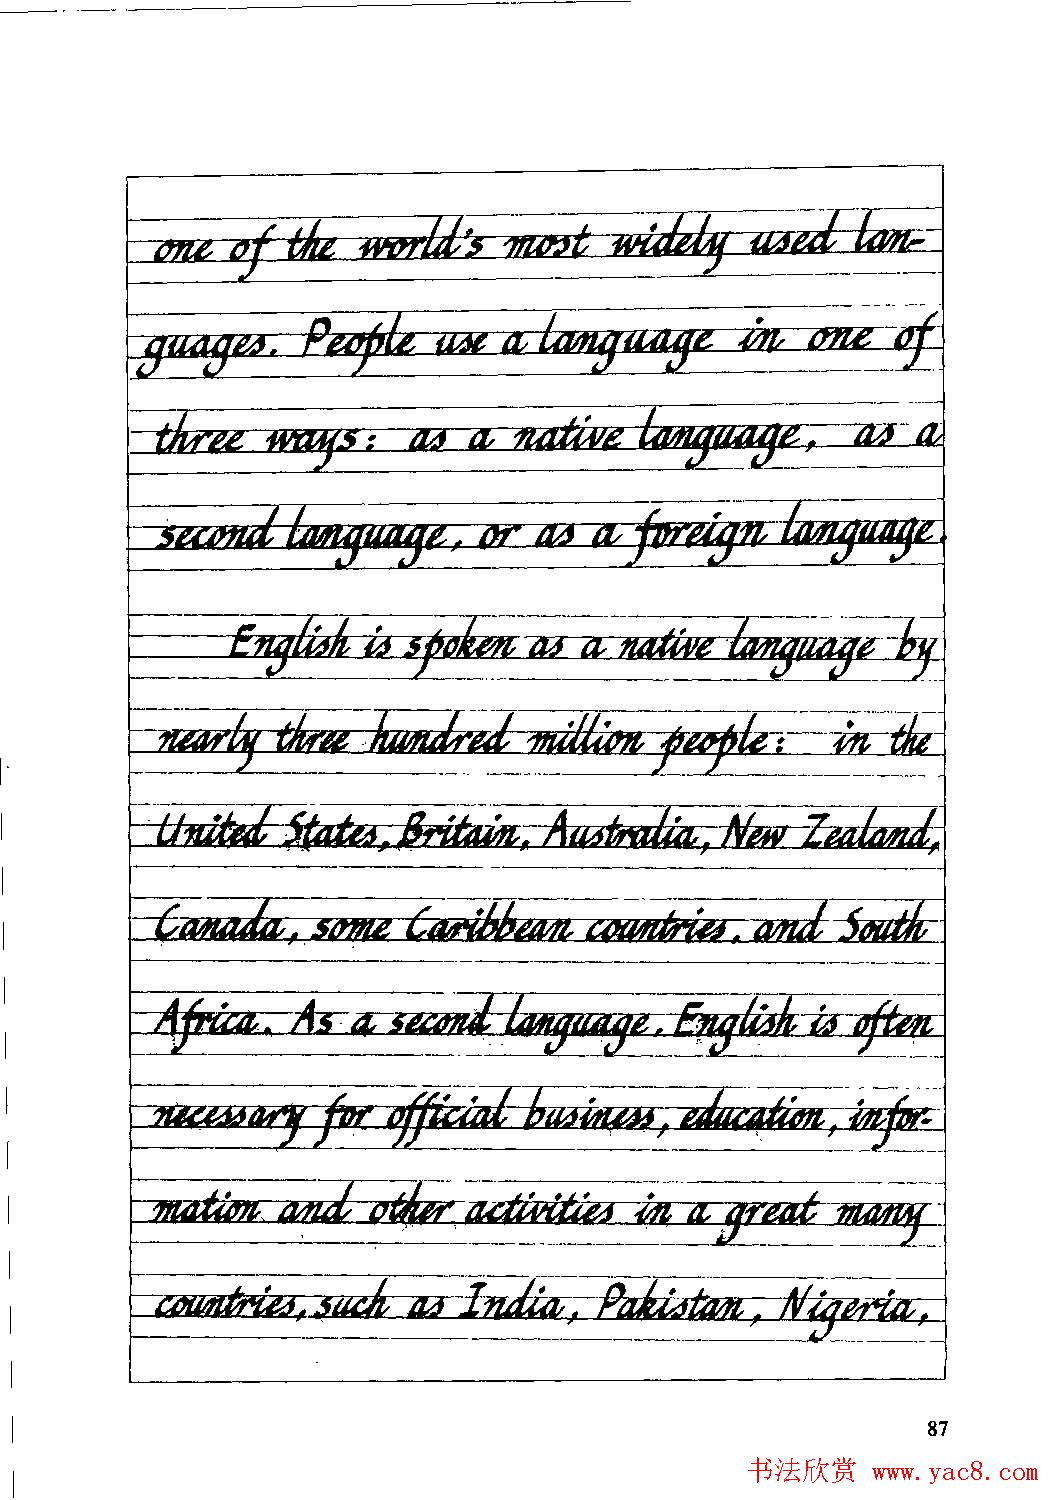 one of the world's most widely used lan-
guages. People use a language in one of
three ways: as a native language, as a
second language, or as a foreign language.
English is spoken as a native language by
nearly three hundred million people: in the
United States, Britain, Australia, New Zealand,
Canada, some Caribbean countries, and South
Africa. As a second language, English is often
necessary for official business, education, infor-
mation and other activities in a great many
countries, such as India, Pakistan, Nigeria,
87
书法欣赏 www.yac8.com